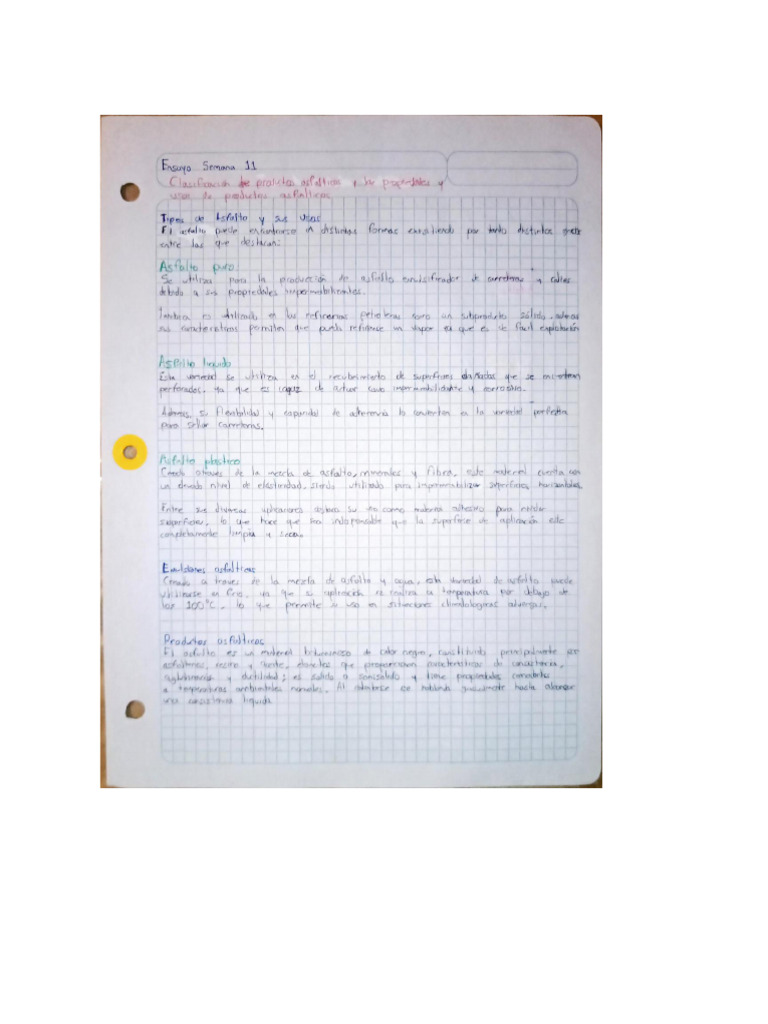 Ensayo Semana 11
Clasificación de productos asfalticos y las propiedades y
usos de productos asfalticos
Tipos de Asfalto y sus usos
El asfalto puede encontrarse en distintas formas existiendo por tanto distintos
entre las que destacan:
Asfalto puro
Se utiliza para la producción de asfalto emulsificador de carreteras o calles
debido a sus propiedades impermeabilizantes.
Tambien es utilizado en las refinerias petroleras como un subproducto sólido, ademas
sus caracteristicas permiten que pueda refinarse un vapor es que es de facil explotación
Asfalto liquido
Esta variedad se utiliza en el recubrimiento de superficies dañadas que se encuentran
perforadas, ya que es capaz de actuar como impermeabilizante y corrosivo.
Ademas, su flexibilidad y capacidad de adherencia lo convierten en la variedad perfecta
para sellar carreteras.
Asfalto plástico
Creado atraves de la mezcla de asfalto, minerales y fibra, este material cuenta con
un elevado nivel de elasticidad, siendo utilizado para impermeabilizar superficies horizontales.
Entre sus diversas aplicaciones destaca su uso como material adhesivo para nivelar
superficies, lo que hace que sea indispensable que la superficie de aplicación este
completamente limpia y seca.
Emulsiones asfalticas
Creado a traves de la mezcla de asfalto y agua, esta variedad de asfalto puede
utilizarse en frio, ya que su aplicación se realiza a temperatura por debajo de
los 100°C, lo que permite su uso en situaciones climatologicas adversas.
Productos asfalticos
El asfalto es un material bituminoso de color negro, constituido principalmente por
asfaltenos, resinas y aceite, elementos que proporcionan caracteristicas de consistencia,
aglutinancia y ductilidad; es solido o semisolido y tiene propiedades cementantes
a temperaturas ambientales normales. Al calentarse se ablanda gradualmente hasta alcanzar
una consistencia liquida.